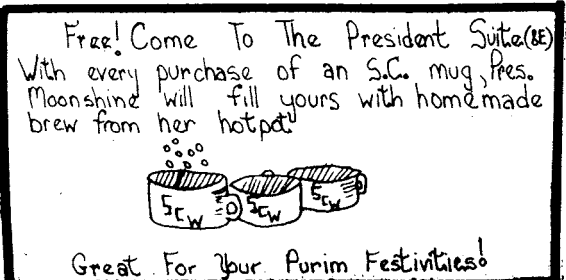 Free! Come To The President Suite (8E)
With every purchase of an S.C. mug, Pres.
Moonshine will fill yours with homemade
brew from her hotpot"
SCW SCW SCW
Great For Your Purim Festivities!